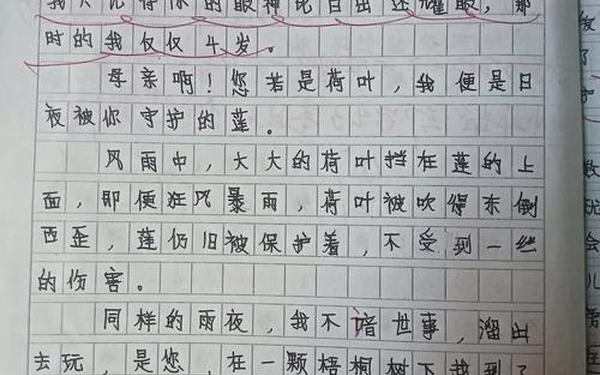 我只记得你的眼神比日出还耀眼，那
时的我仅仅4岁。
母亲啊！您若是荷叶，我便是日
夜被你守护的莲。
风雨中，大大的荷叶挡在莲的上
面，即便狂风暴雨，荷叶被吹得东倒
西歪，莲仍旧被保护着，不受到一丝
的伤害。
同样的雨夜，我不谙世事，溜出
去玩，是您，在一颗梧桐树下找到了